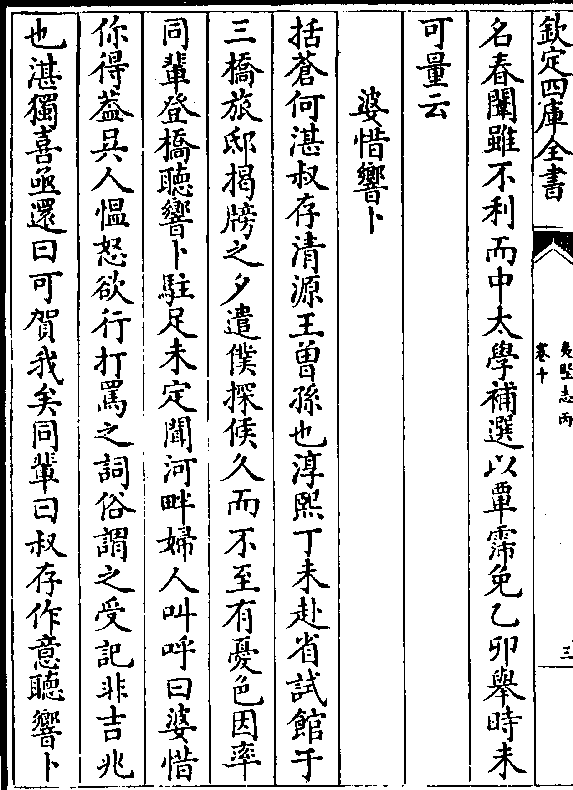 欽定四庫全書
夷堅志丙
卷十
三
名春闈雖不利而中太學補選以覃霈免乙卯舉時未
可量云
婆惜響卜
括蒼何湛叔存清源王曾孫也淳熙丁未赴省試館于
三橋旅邸揭牓之夕遣僕探候久而不至有憂色因率
同輩登橋聽響卜駐足未定聞河畔婦人叫呼曰婆惜
你得葢其人愠怒欲行打罵之詞俗謂之受記非吉兆
也湛獨喜亟還曰可賀我矣同輩曰叔存作意聽響卜